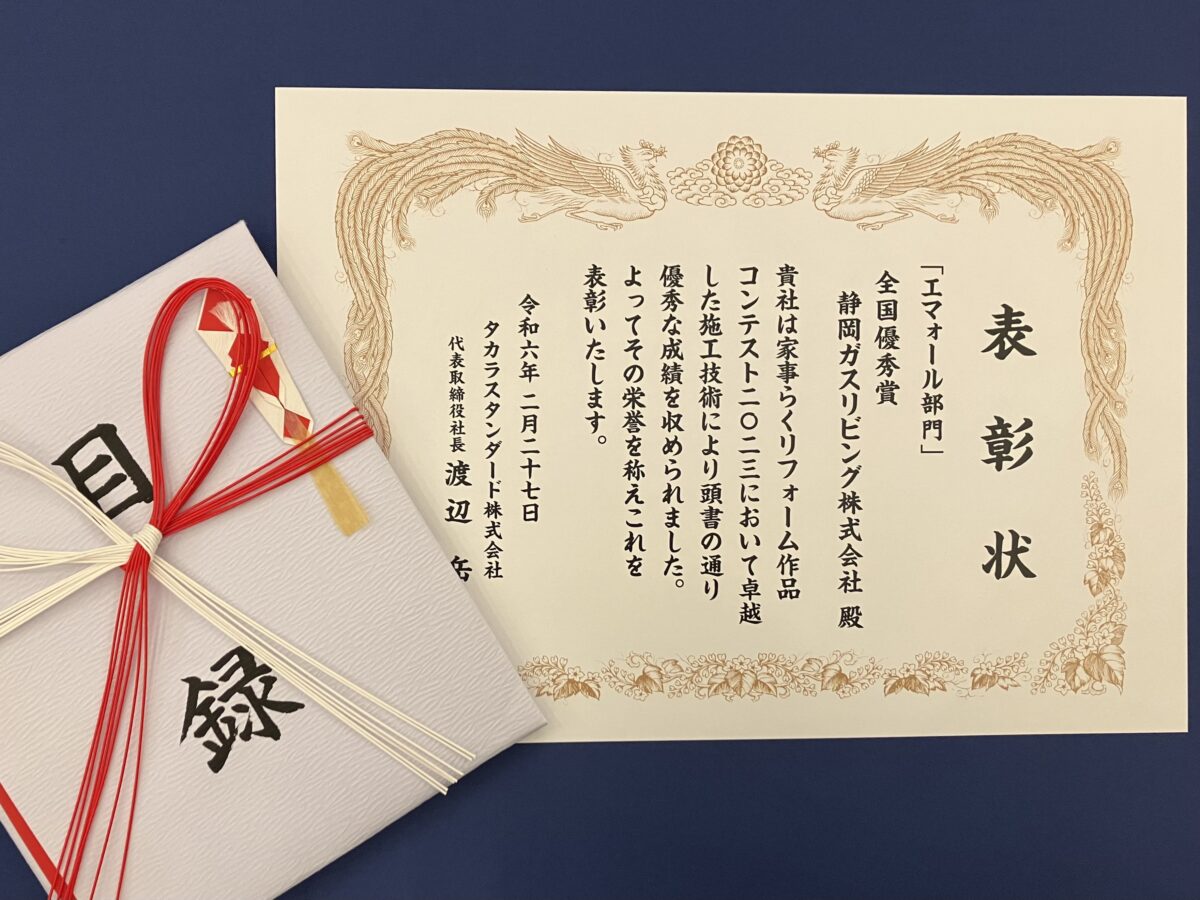 表彰状
「エマォール部門」
全国優秀賞
静岡ガスリビング株式会社 殿
貴社は家事らくリフォーム作品
コンテスト二〇二三において卓越
した施工技術により頭書の通り
優秀な成績を収められました。
よってその栄誉を称えこれを
表彰いたします。
令和六年 二月二十七日
タカラスタンダード株式会社
代表取締役社長 渡辺 岳
目録